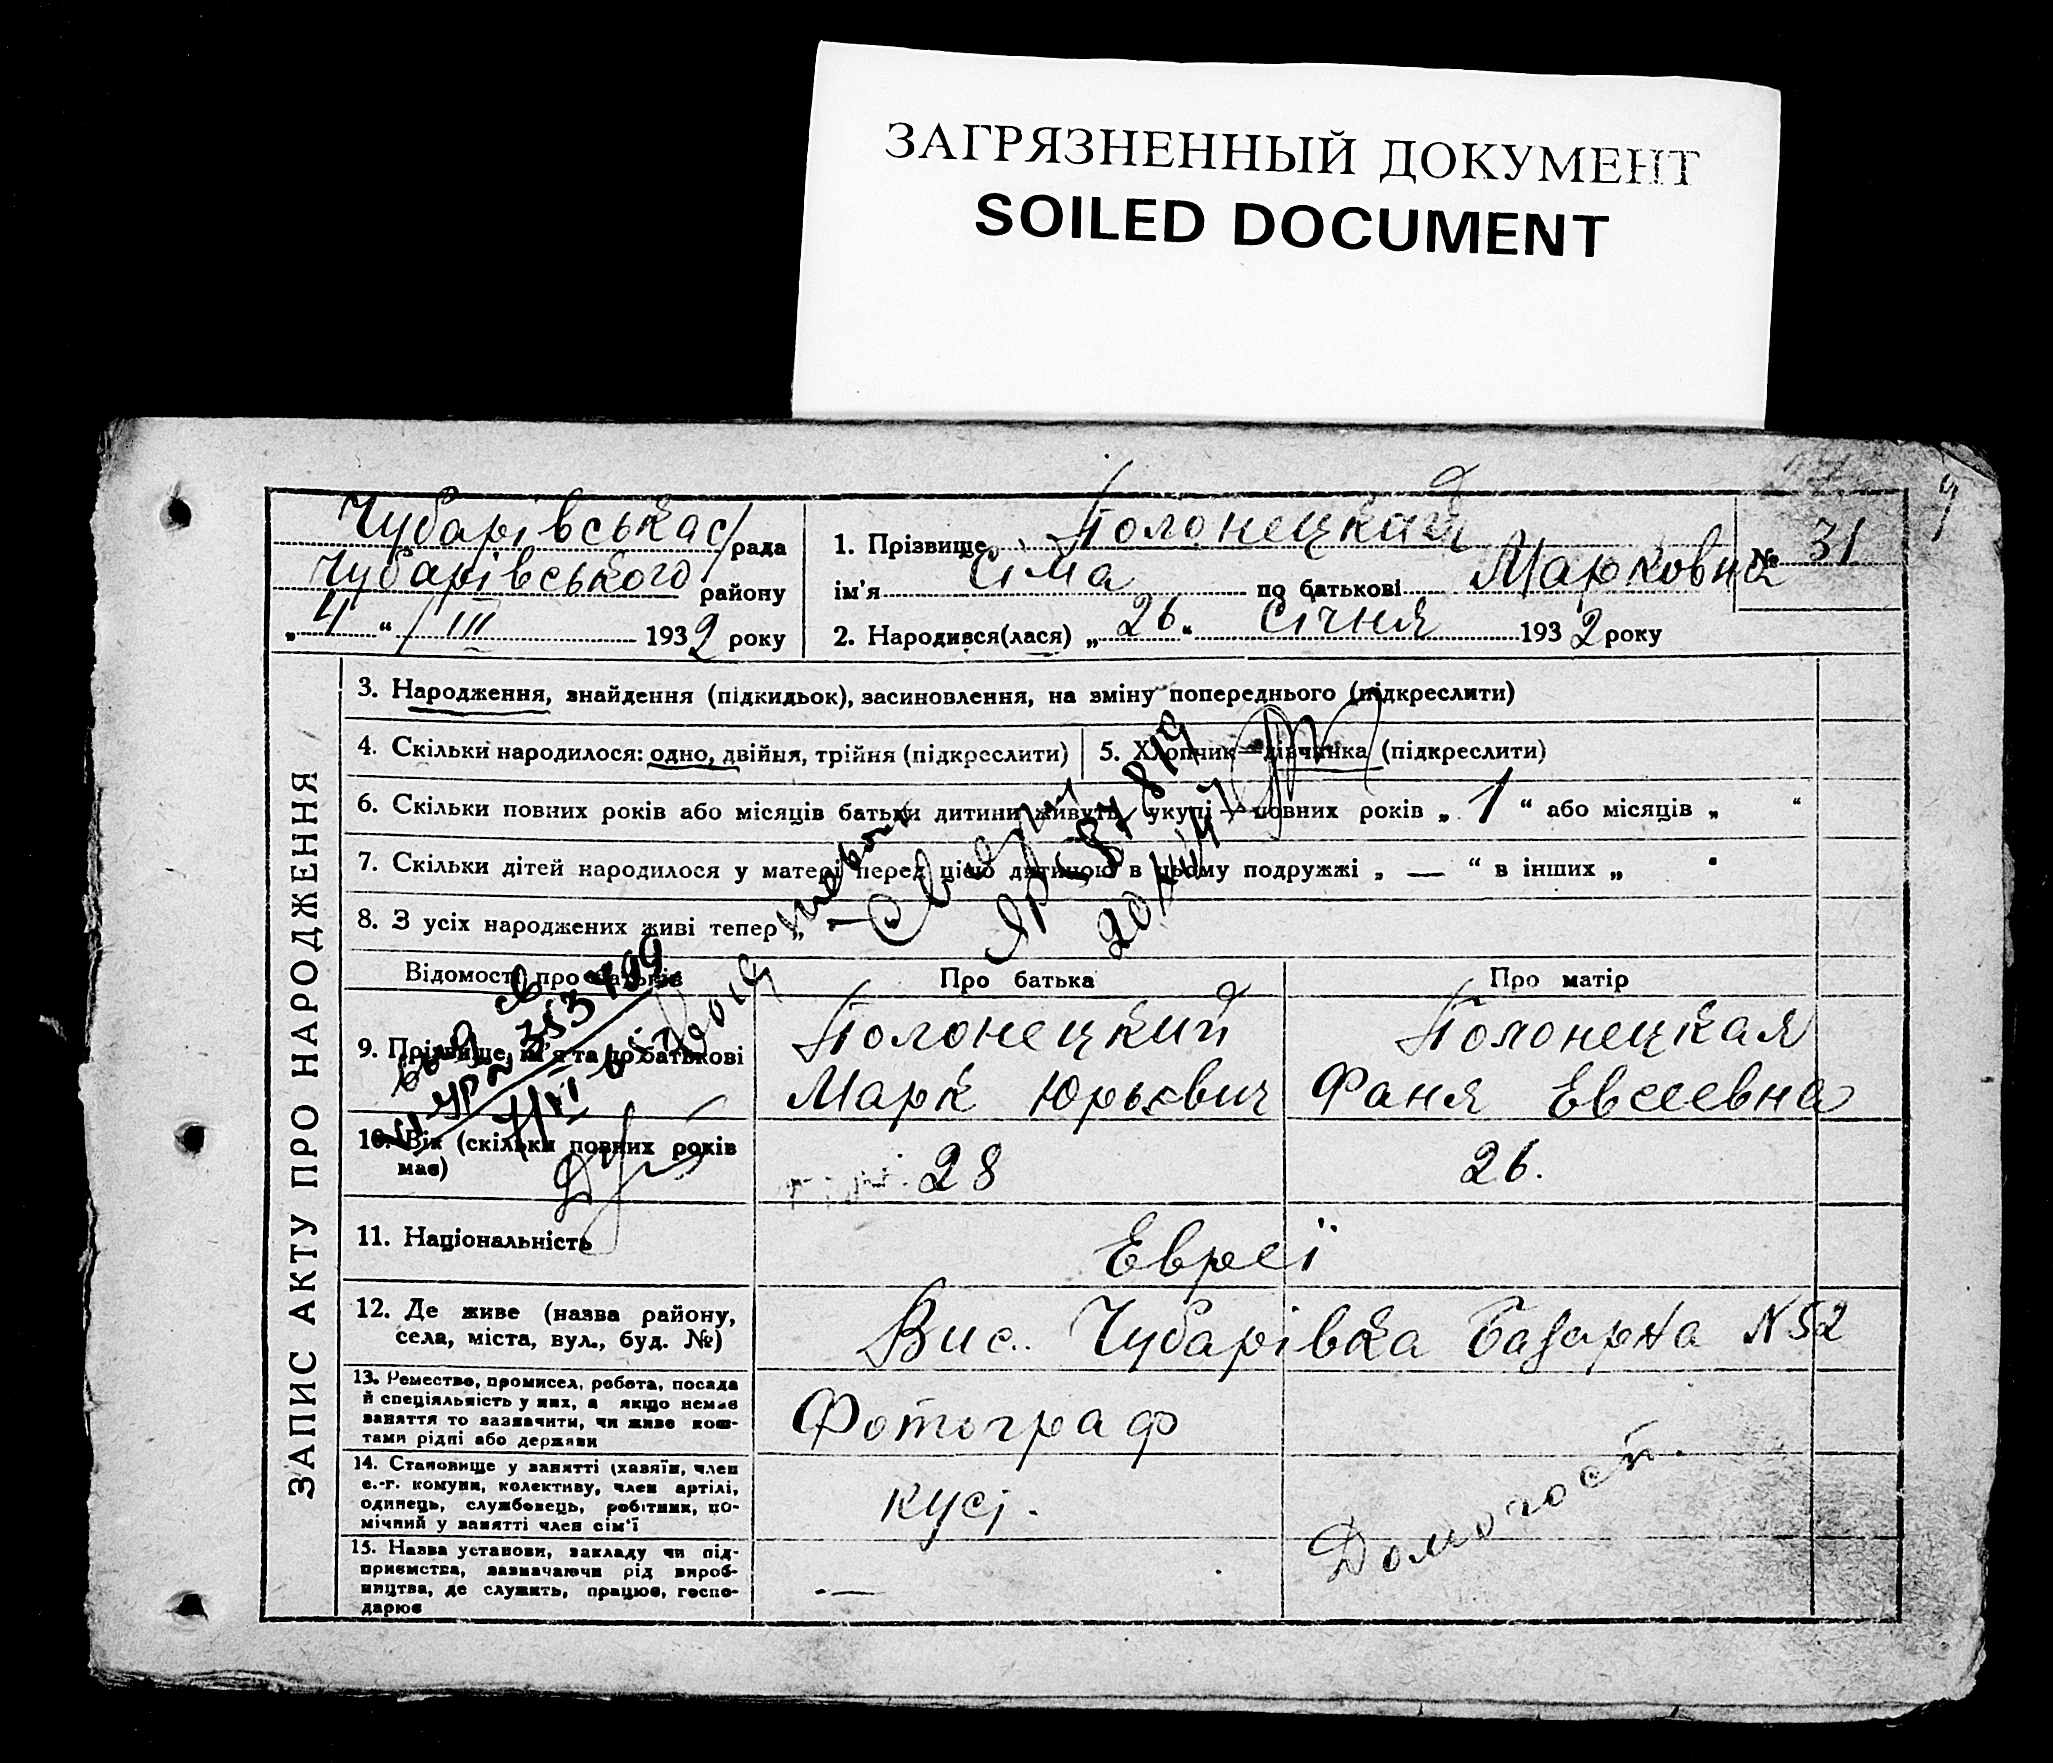 ЗАГРЯЗНЕННЫЙ ДОКУМЕНТ
SOILED DOCUMENT
Чубарівська с/рада
Чубарівського району
„ 4 “ / III 1932 року
1. Прізвище Полонецкая
ім'я Сіма по батькові Марковна
№ 31
2. Народився(лася) „ 26 “ Січня 1932 року
ЗАПИС АКТУ ПРО НАРОДЖЕННЯ
3. Народження, знайдення (підкидьок), засиновлення, на зміну попереднього (підкреслити)
4. Скільки народилося: одно, двійня, трійня (підкреслити)
5. Хлопчик—дівчинка (підкреслити)
6. Скільки повних років або місяців батьки дитини живуть укупі — повних років „ 1 “ або місяців „ “
7. Скільки дітей народилося у матері перед цією дитиною в цьому подружжі „ — “ в інших „
8. З усіх народжених живі тепер „
Відомості про батьків
Про батька
Про матір
9. Прізвище, ім'я та по батькові
Полонецкий
Марк Юрьевич
Полонецкая
Фаня Евсеевна
10. Вік (скільки повних років має)
28
26.
11. Національність
Евреї
12. Де живе (назва району,
села, міста, вул., буд. №)
Вис. Чубарівка Базарна N 52
13. Ремество, промисел, робота, посада
й спеціяльність у них, а якщо немає
заняття то зазначити, чи живе кош-
тами рідні або держави
Фотограф
14. Становище у занятті (хазяїн, член
с.-г. комуни, колективу, член артілі,
одинець, службовець, робітник, по-
мічний у занятті член сім'ї
кусі.
Домогосп.
15. Назва установи, закладу чи під-
приємства, зазначаючи рід вироб-
ництва, де служить, працює, госпо-
дарює
—